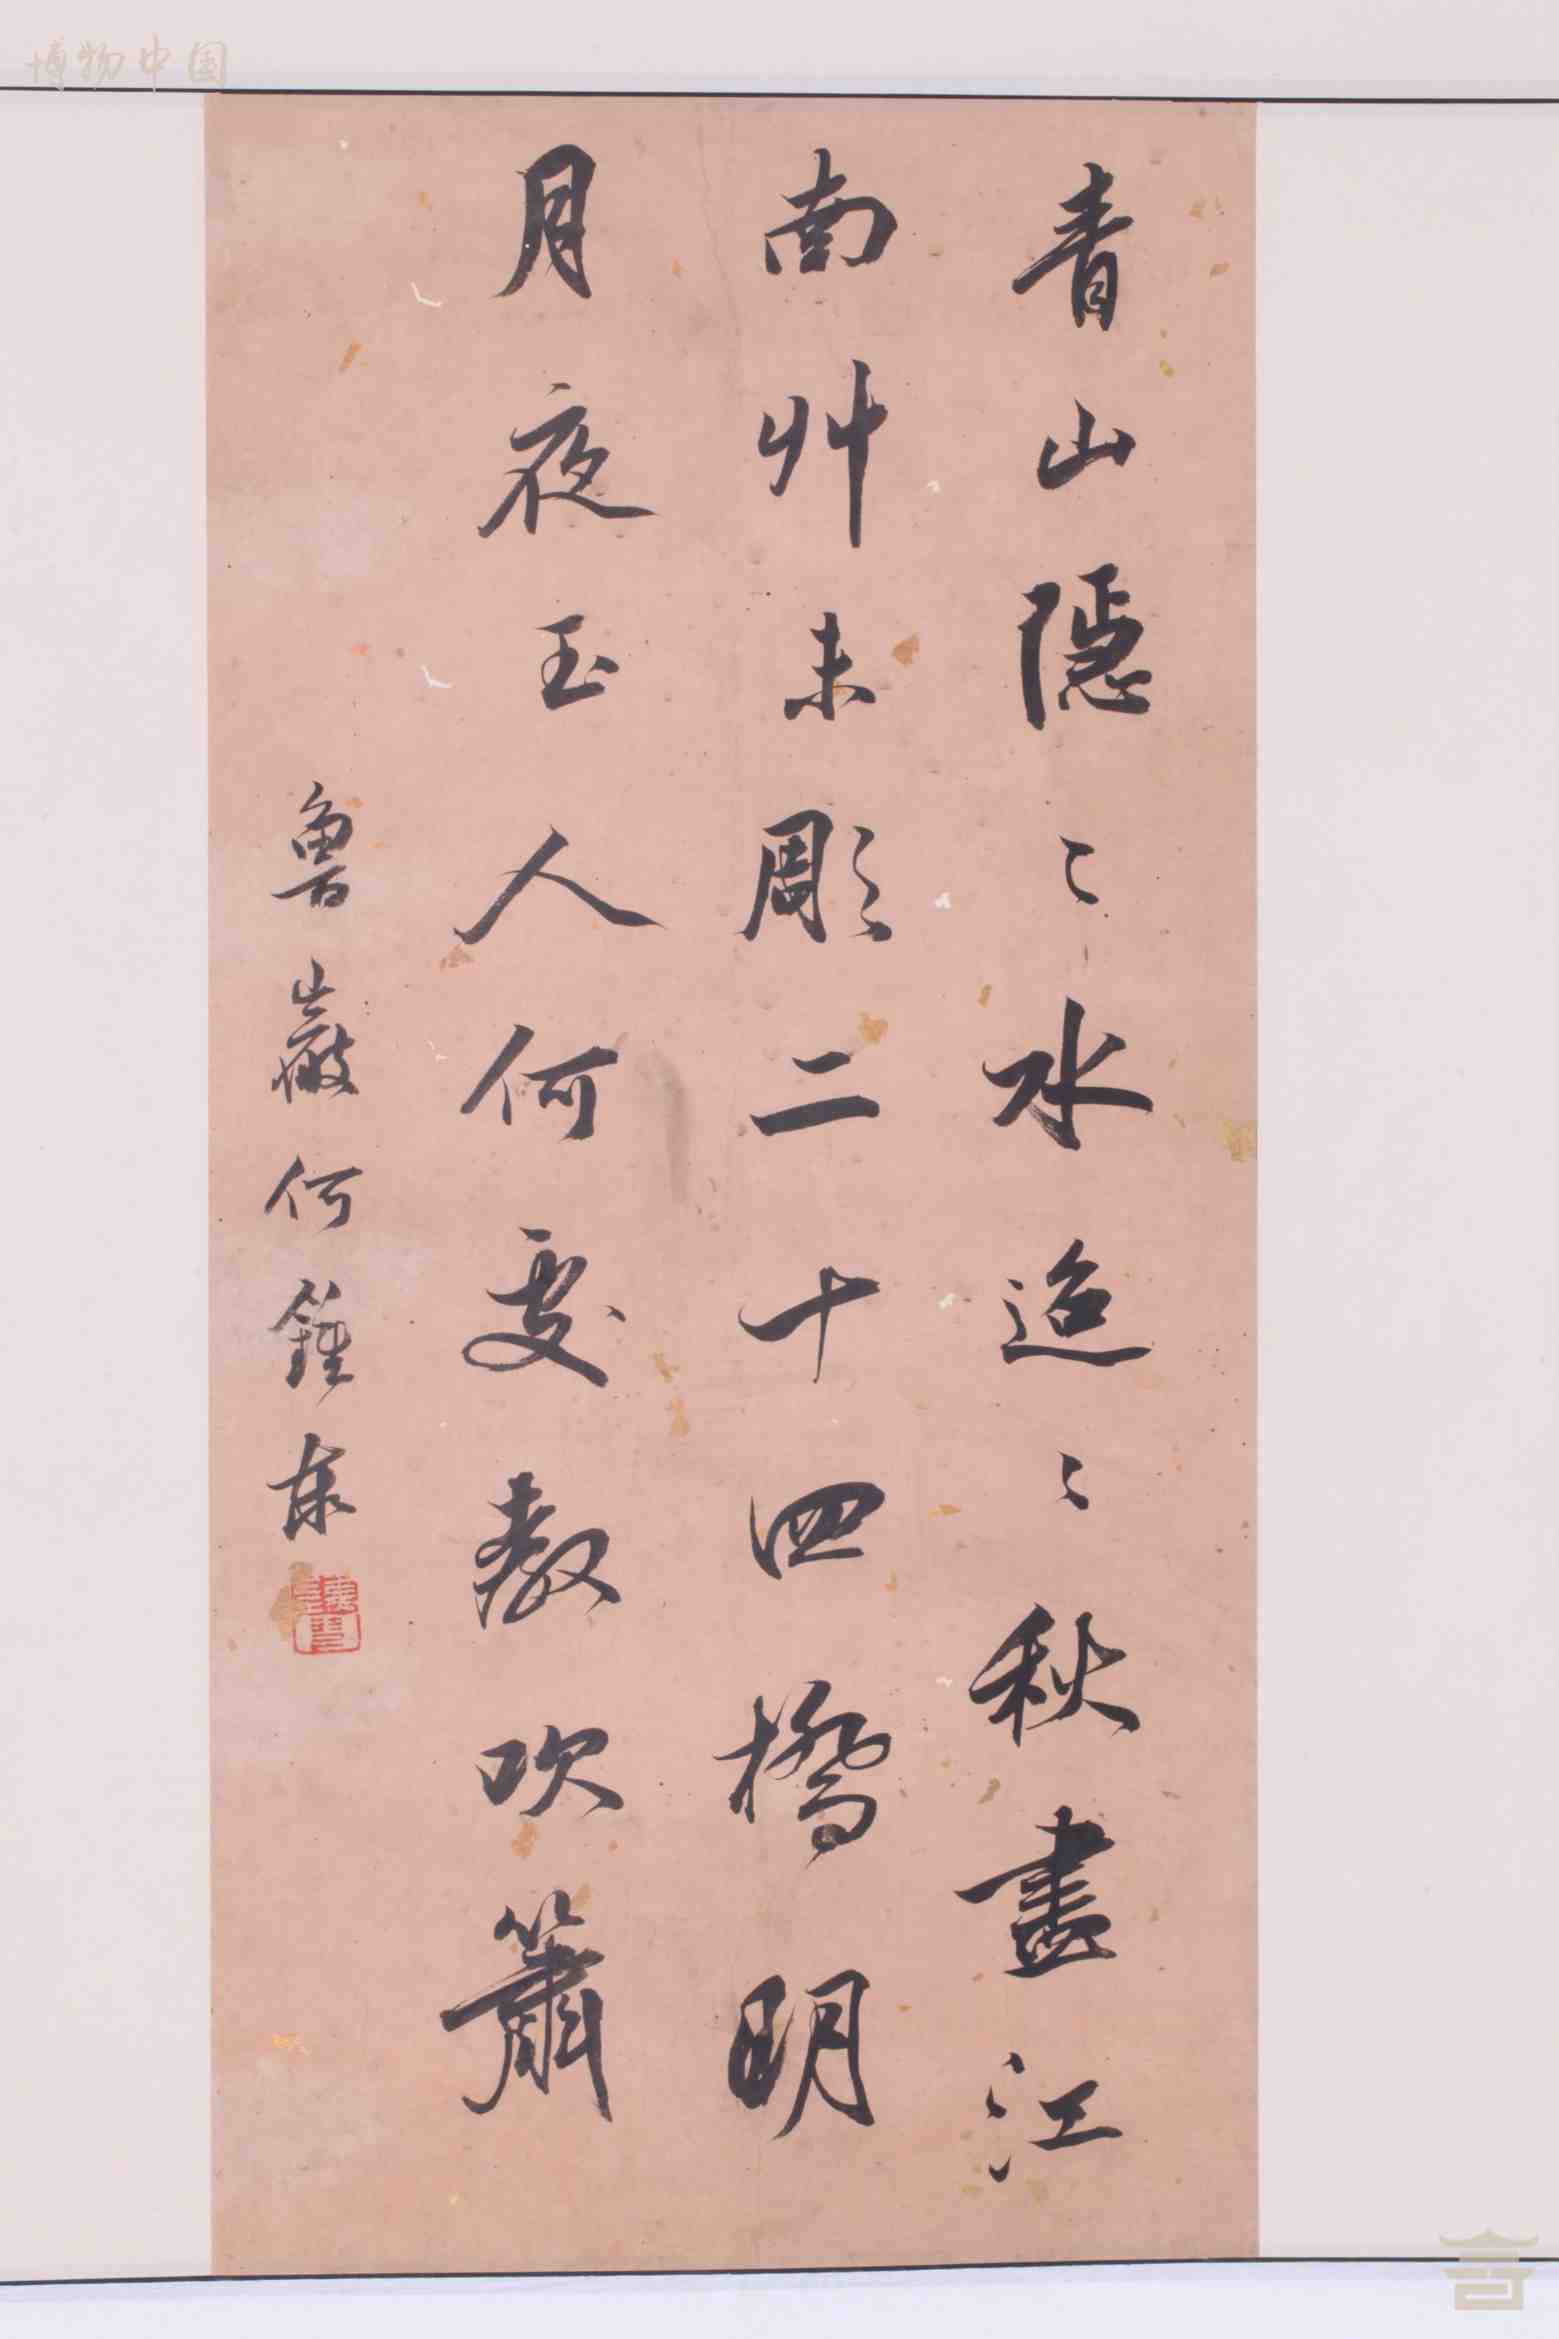 青山隱〻水迢〻秋盡江
南艸未彫二十四橋明
月夜玉人何處教吹簫
魯巖何鍾泰
博物中国